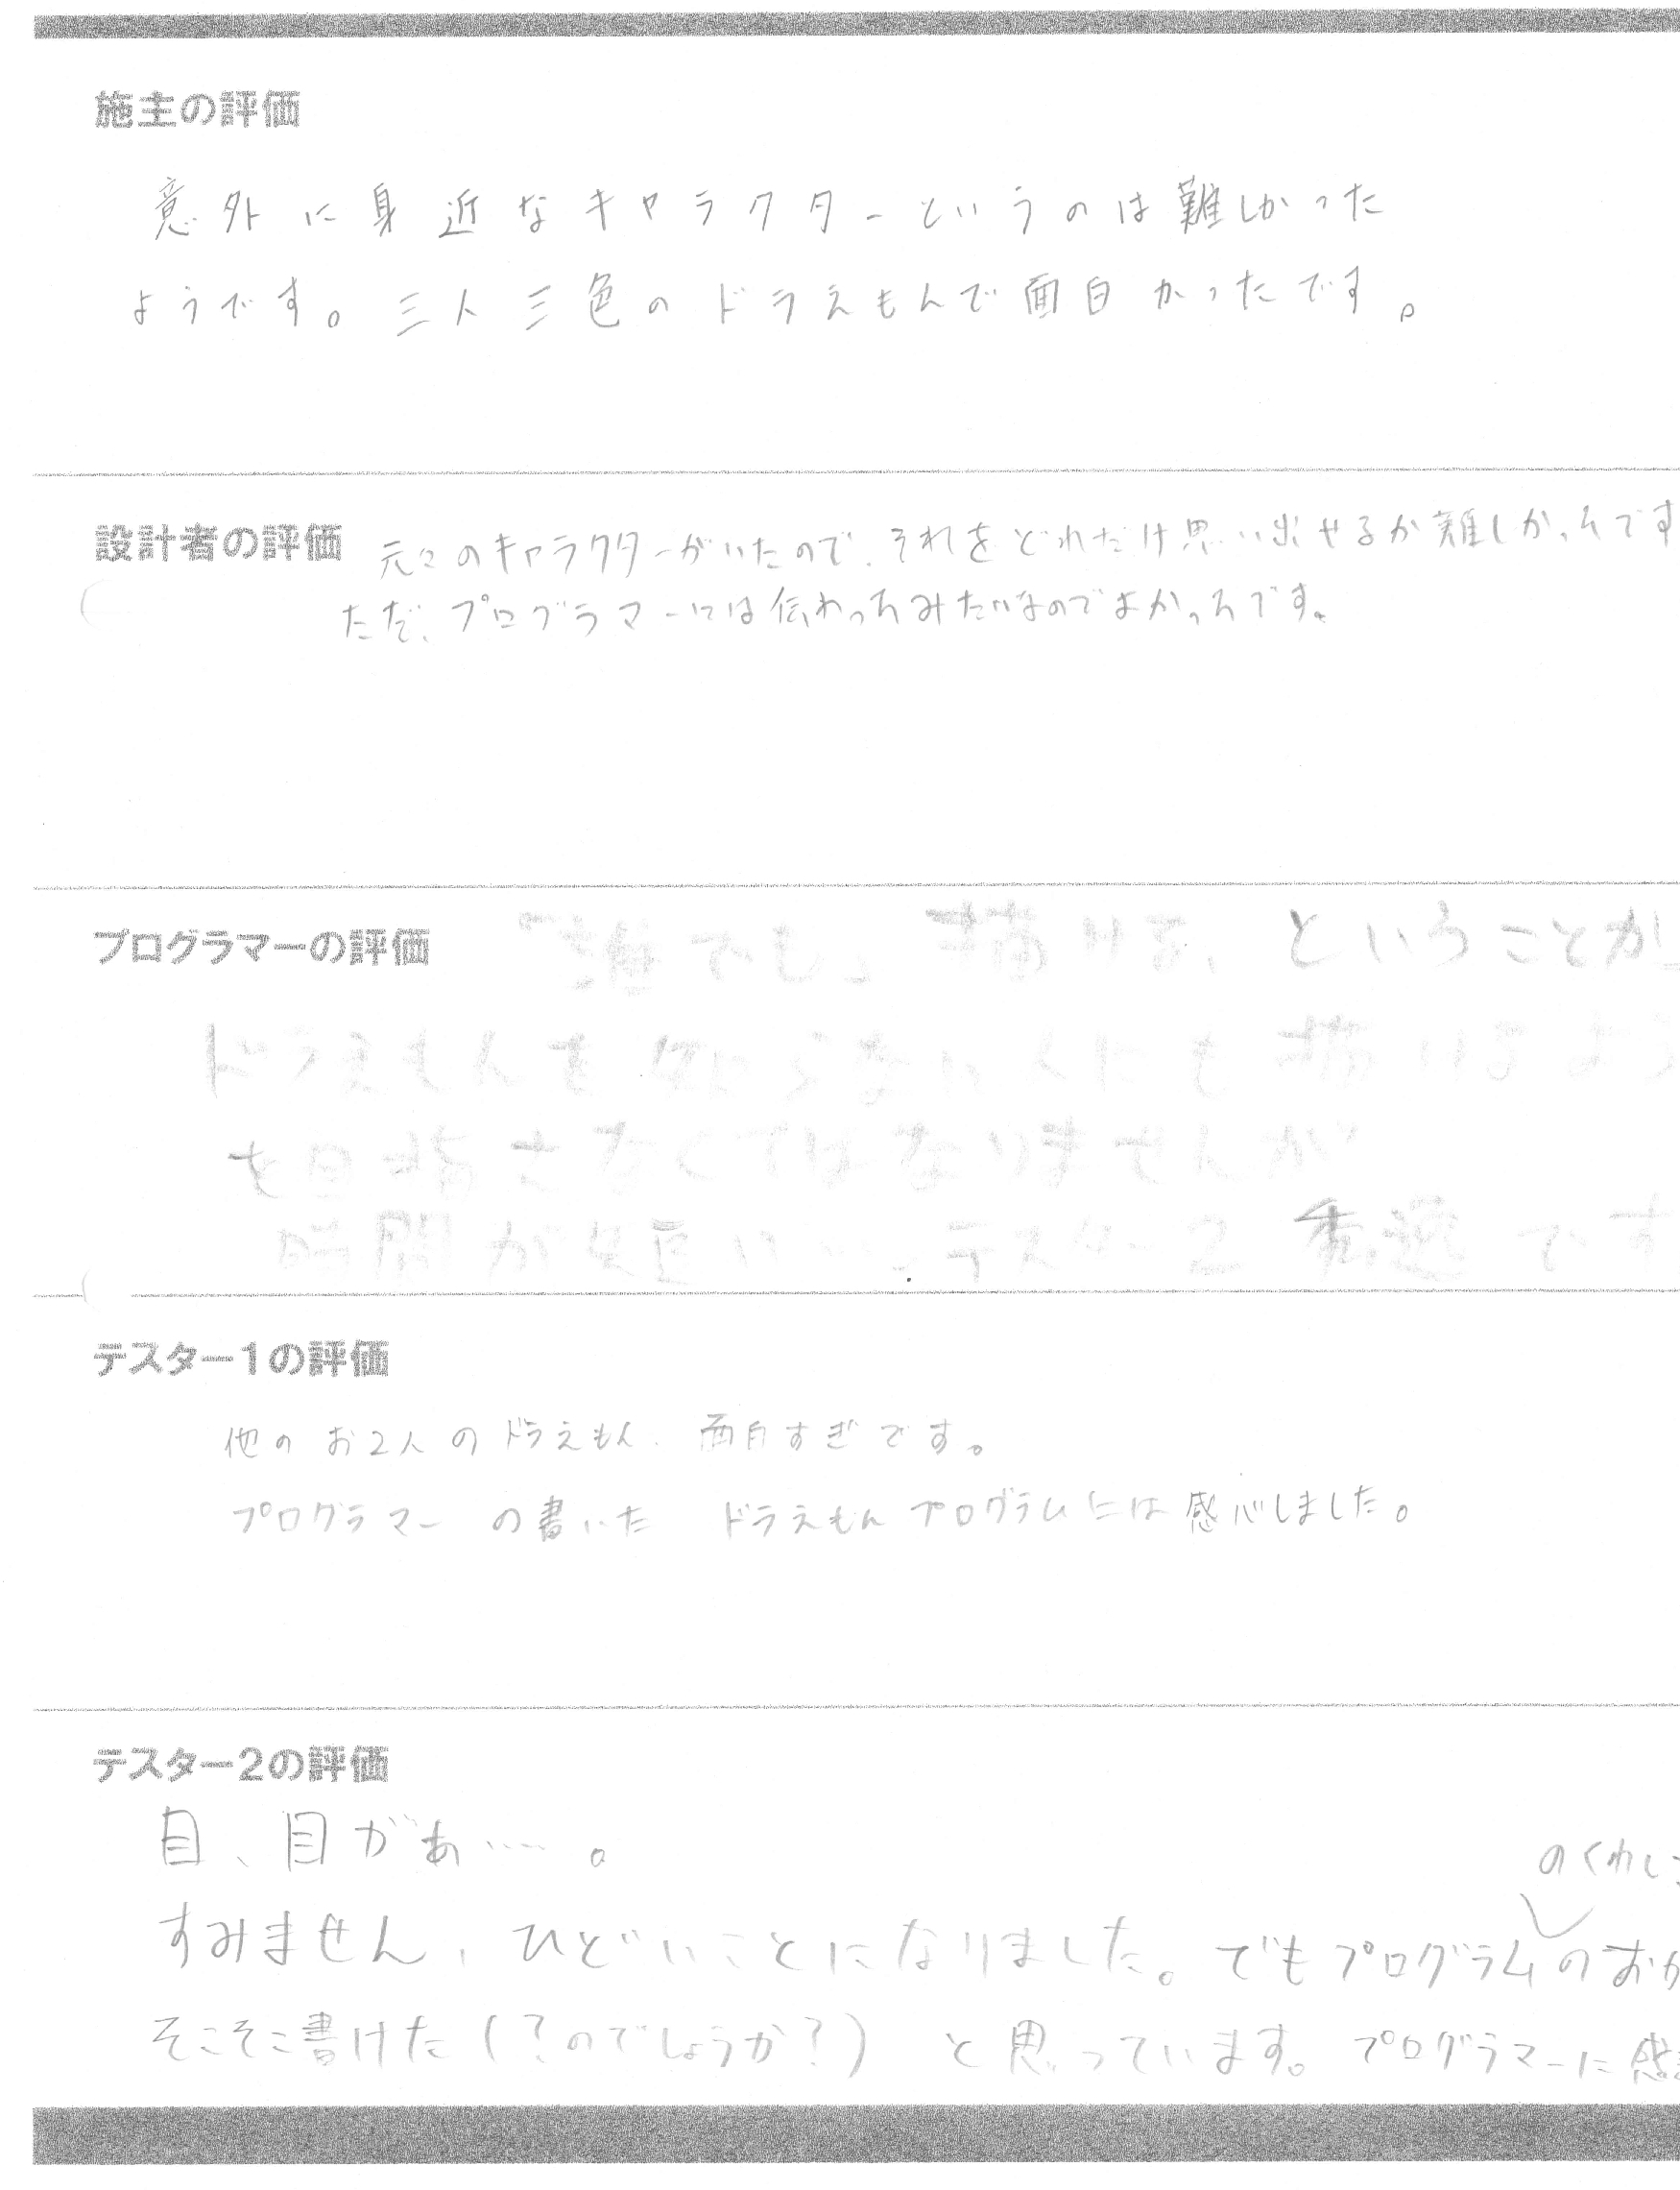 施主の評価
意外に身近なキャラクターというのは難しかった
ようです。三人三色のドラえもんで面白かったです。
設計者の評価 元々のキャラクターがいたので、それをどれだけ思い出せるか難しかったです
ただ、プログラマーには伝わったみたいなのでよかったです。
プログラマーの評価 「誰でも」描ける、ということが
ドラえもんを知らない人にも描けるよう
を目指さなくてはなりませんが
時間が短い…。テスター2 秀逸です
テスター1の評価
他のお2人のドラえもん、面白すぎです。
プログラマーの書いた ドラえもんプログラムには感心しました。
テスター2の評価
目、目がぁ……。
のくわしさ
すみません、ひどいことになりました。でもプログラムのおか
そこそこ書けた(?のでしょうか?) と思っています。プログラマーに感